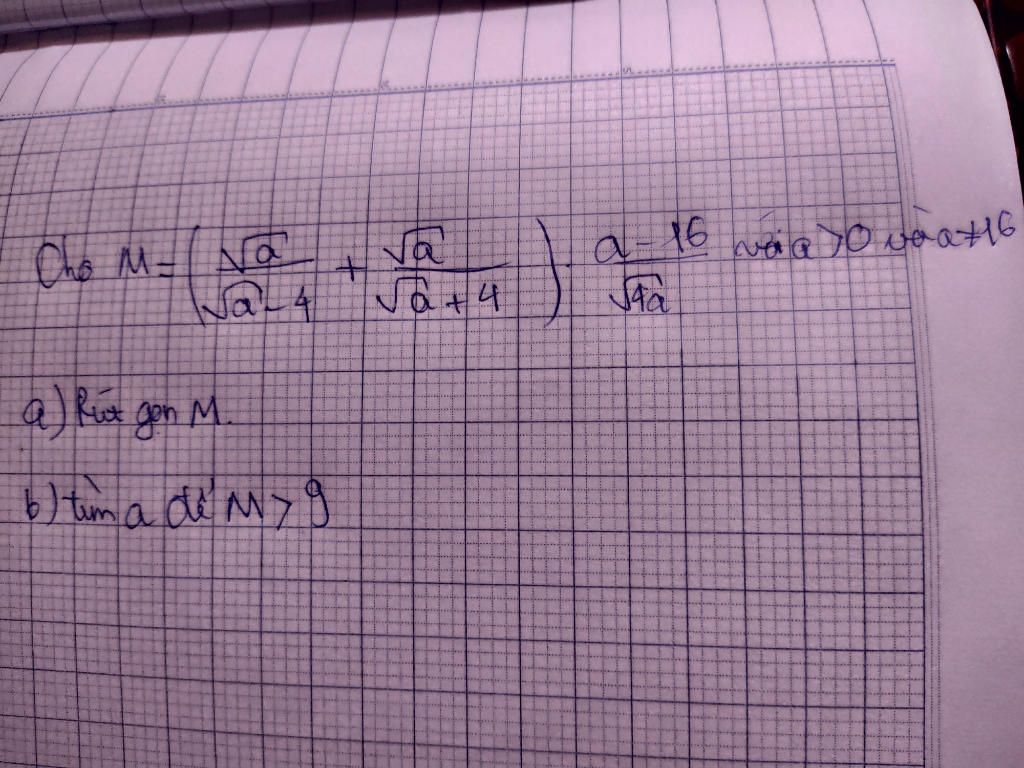 Cho M = (√a/(√a - 4) + √a/(√a + 4)) . (a - 16)/√4a với a > 0 và a ≠ 16
a) Rút gọn M.
b) tìm a để M > 9